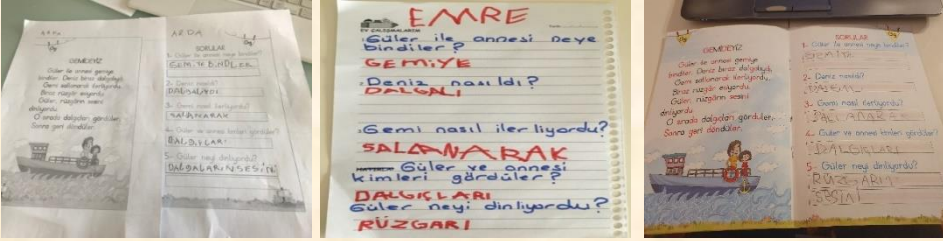 ARDA
ARDA
GEMİDEYİZ
Güler ile annesi gemiye
bindiler. Deniz biraz dalgalıydı.
Gemi sallanarak ilerliyordu.
Biraz rüzgâr esiyordu.
Güler, rüzgârın sesini
dinliyordu.
O sırada dalgıçları gördüler.
Sonra geri döndüler.
SORULAR
1- Güler ile annesi neye bindiler?
2- Deniz nasıldı?
DALGALIYDI
3- Gemi nasıl ilerliyordu?
SALLANARAK
4- Güler ve annesi kimleri gördüler?
5- Güler neyi dinliyordu?
EMRE
EV ÇALIŞMALARIM
Güler ile annesi neye
bindiler?
GEMİYE
Deniz nasıldı?
DALGALI
Gemi nasıl ilerliyordu?
SALANARAK
Güler ve annesi
kimleri gördüler?
DALGIÇLARI
Güler neyi dinliyordu?
RÜZGARI
GEMİDEYİZ
Güler ile annesi gemiye
bindiler. Deniz biraz dalgalıydı.
Gemi sallanarak ilerliyordu.
Biraz rüzgâr esiyordu.
Güler, rüzgârın sesini
dinliyordu.
O sırada dalgıçları gördüler.
Sonra geri döndüler.
SORULAR
1- Güler ile annesi neye bindiler?
GEMİYE
2- Deniz nasıldı?
3- Gemi nasıl ilerliyordu?
4- Güler ve annesi kimleri gördüler?
5- Güler neyi dinliyordu?
RÜZGARIN
SESİNİ